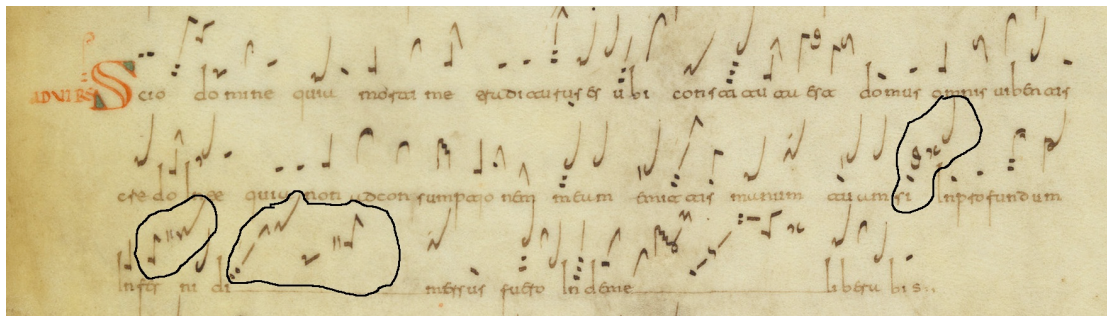 AD VERS Scio domine quia morti me traditurus es ubi constituta est domus omnis vibentis
credo quia non ad consumptionem meam emittis manum tuam si in profundum
inferni di mersus fuero inde me liberabis